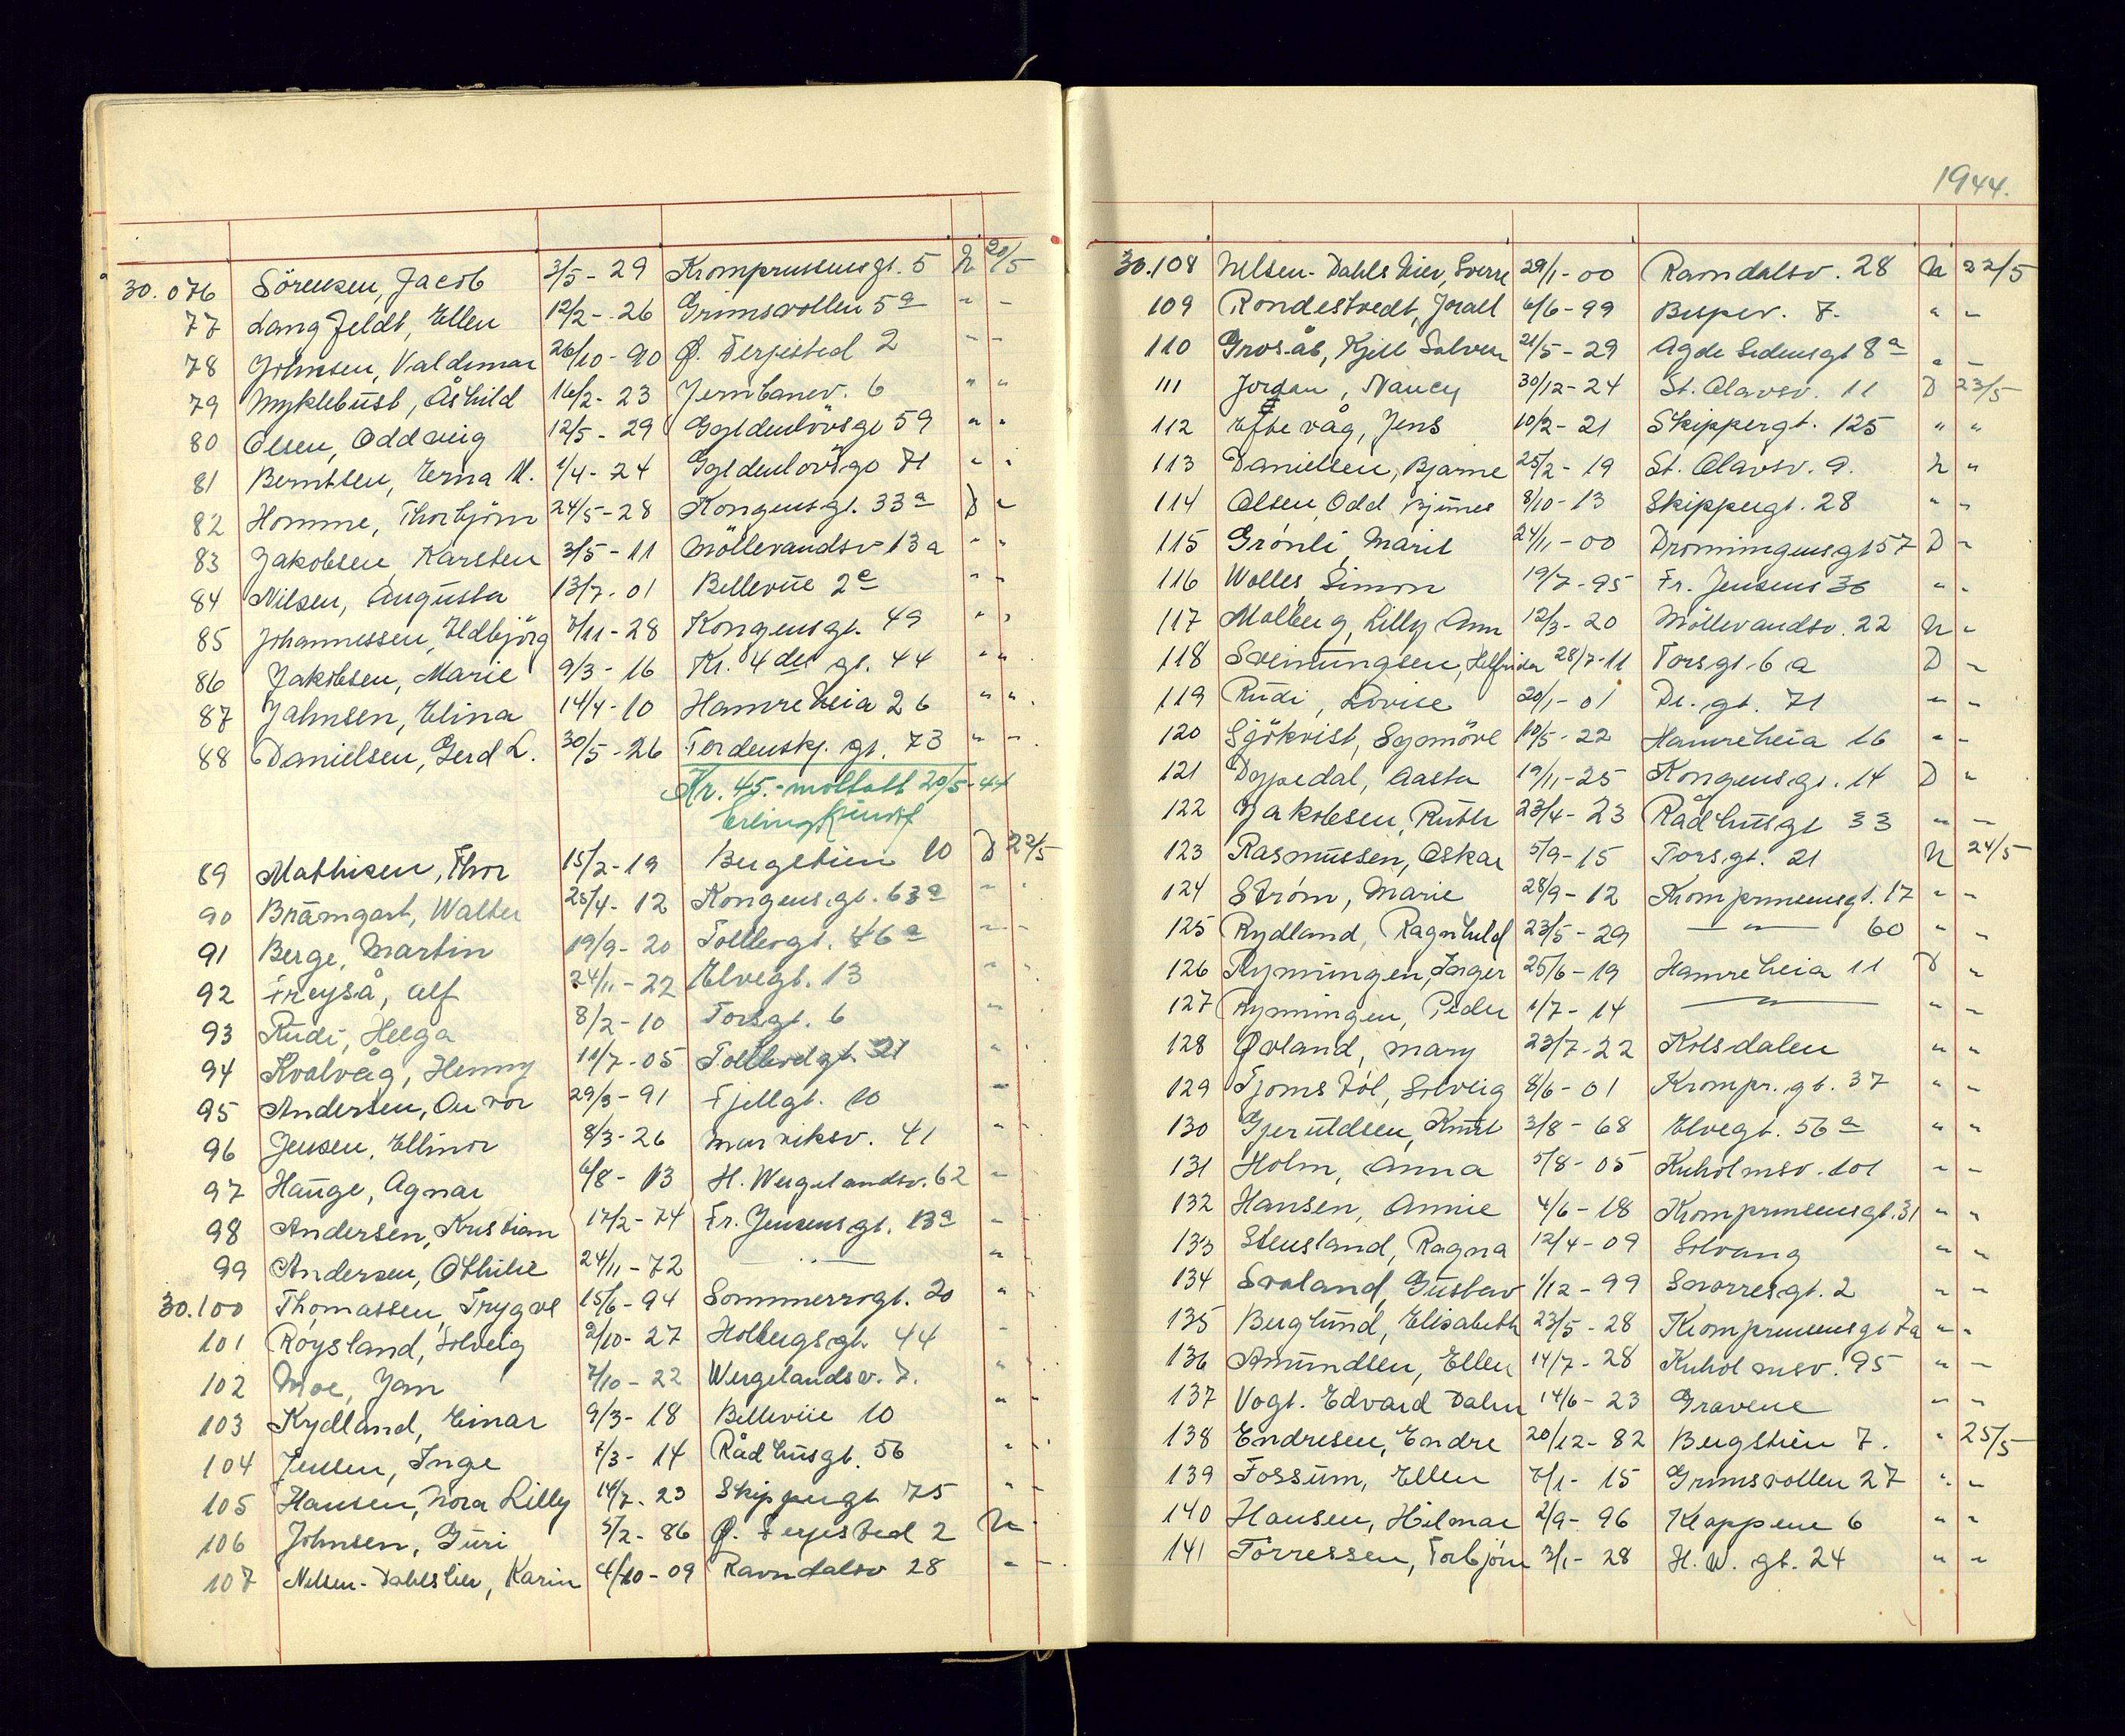 30.076 Sörensen, Jacob 3/5-29 Kronprinsensgt. 5 N 20/5
77 Langfeldt, Ellen 12/2-26 Grimsvollen 5a " -
78 Johnsen, Valdemar 26/10-90 Ø. Ferjested 2 - -
79 Myklebust, Åshild 16/2-23 Jernbanev. 6 " "
80 Olsen, Oddveig 12/5-29 Gyldenlövsgt 59 " "
81 Berntsen, Erna M. 1/4-24 Gyldenlövsgt 71 " "
82 Homme, Thorbjörn 24/5-28 Kongensgt. 33a D "
83 Jakobsen, Karsten 3/5-11 Möllevandsv 13a " "
84 Nilsen, Augusta 13/7-01 Bellevue 2c " "
85 Johannessen, Eldbjörg 7/11-28 Kongensgt. 49 " "
86 Jakobsen, Marie 9/3-16 Kr. 4des gt. 44 " "
87 Jahnsen, Elina 14/4-10 Hamreheia 26 " "
88 Danielsen, Gerd L. 30/5-26 Tordenskj. gt. 73 " "
Kr. 45.- mottatt 20/5-44
Erling
89 Mathisen, Thor 15/2-19 Bergstien 10 D 22/5
90 Brämgart, Walter 25/4-12 Kongensgt. 63a " "
91 Berge, Martin 19/9-20 Tollbogt. 46a " -
92 Frøyså, Alf 24/11-22 Elvegt. 13 " "
93 Rudi, Helga 8/2-10 Torsgt. 6 "
94 Kvalvåg, Henny 11/7-05 Tollbodgt. 21 " "
95 Andersen, Ou vor 29/3-91 Fjellgt. 10 "
96 Jensen, Ellinor 8/3-26 Marviksv. 41 " "
97 Hauge, Agnar 6/8-13 H. Wergelandsv. 62 "
98 Andersen, Kristian 17/2-74 Fr. Jensensgt. 13a " "
99 Andersen, Othilie 24/11-72 — " — " "
30.100 Thomassen, Trygve 15/6-94 Sommerrogt. 20 " "
101 Röysland, Solveig 2/10-27 Holbergsgt. 44 "
102 Moe, Jan 7/10-22 Wergelandsv. 7. " "
103 Kydland, Einar 9/3-18 Bellevue 10 " "
104 Jensen, Inge 7/3-14 Rådhusgt. 56 " "
105 Hansen, Nora Lilly 14/7-23 Skippergt 75 " "
106 Johnsen, Guri 5/2-86 Ø. Ferjested 2 N "
107 Nilsen-Dahlskier, Karin 4/10-09 Ravndalsv 28 " -
1944.
30.108 Nilsen-Dahlskier, Sverre 29/1-00 Ravndalsv. 28 N 22/5
109 Rondestvedt, Jorall 6/6-99 Bispev. 7. " "
110 Grosås, Kjell Salven 21/5-29 Agde Sidensgt 8a " -
111 Jordan, Nancy 30/12-24 St. Olavsv. 11 D 23/5
112 Eftevåg, Jens 10/2-21 Skippergt. 125 " "
113 Danielsen, Bjarne 25/2-19 St. Olavsv. 9. N "
114 Olsen, Odd 8/10-13 Skippergt. 28 " "
115 Grönli, Marit 24/11-00 Dronningensgt 57 D "
116 Wolles, Simon 19/7-95 Fr. Jensens 36 " "
117 Molberg, Lilly Ann 12/3-20 Möllevandsv. 22 N "
118 Sveinungsen, Helfrida 28/7-11 Torsgt. 6a D "
119 Rudi, Lovise 20/1-01 De. gt. 71 " "
120 Sjökvist, Synnöve 10/5-22 Hamreheia 16 " "
121 Dypedal, Aasta 19/11-25 Kongensgt. 14 D "
122 Jakobsen, Ruth 23/4-23 Rådhusgt 33 " -
123 Rasmussen, Oskar 5/9-15 Torsgt. 21 N 24/5
124 Ström, Marie 28/9-12 Kronprinsensgt. 17 " "
125 Rydland, Ragnhild 23/5-29 — " — 60 " "
126 Rynningen, Inger 25/6-19 Hamreheia 11 D "
127 Rynningen, Peder 1/7-14 — " — " "
128 Øvland, Mary 23/7-22 Kolsdalen " "
129 Tjomstöl, Solveig 8/6-01 Kronpr. gt. 37 " "
130 Gjeruldsen, Knut 3/8-68 Elvegt. 56a " "
131 Holm, Anna 5/8-05 Kuholmsv. 101 " "
132 Hansen, Annie 4/6-18 Kronprinsensgt. 31 " "
133 Stensland, Ragna 12/4-09 Solvang " "
134 Svaland, Gustav 1/12-99 Snorresgt. 2 " "
135 Berglund, Elisabeth 23/5-28 Kronprinsensgt 7a " "
136 Amundsen, Ellen 14/7-28 Kuholmsv. 95 " -
137 Vogt. Edvard Dahn 14/6-23 Gravene " "
138 Endresen, Endre 20/12-82 Bergstien 7. " 25/5
139 Fossum, Ellen 7/1-15 Grimsvollen 27 " "
140 Hansen, Hilmar 2/9-96 Kleppene 6 " "
141 Torressen, Torbjörn 3/1-28 H. W. gt. 24 " "